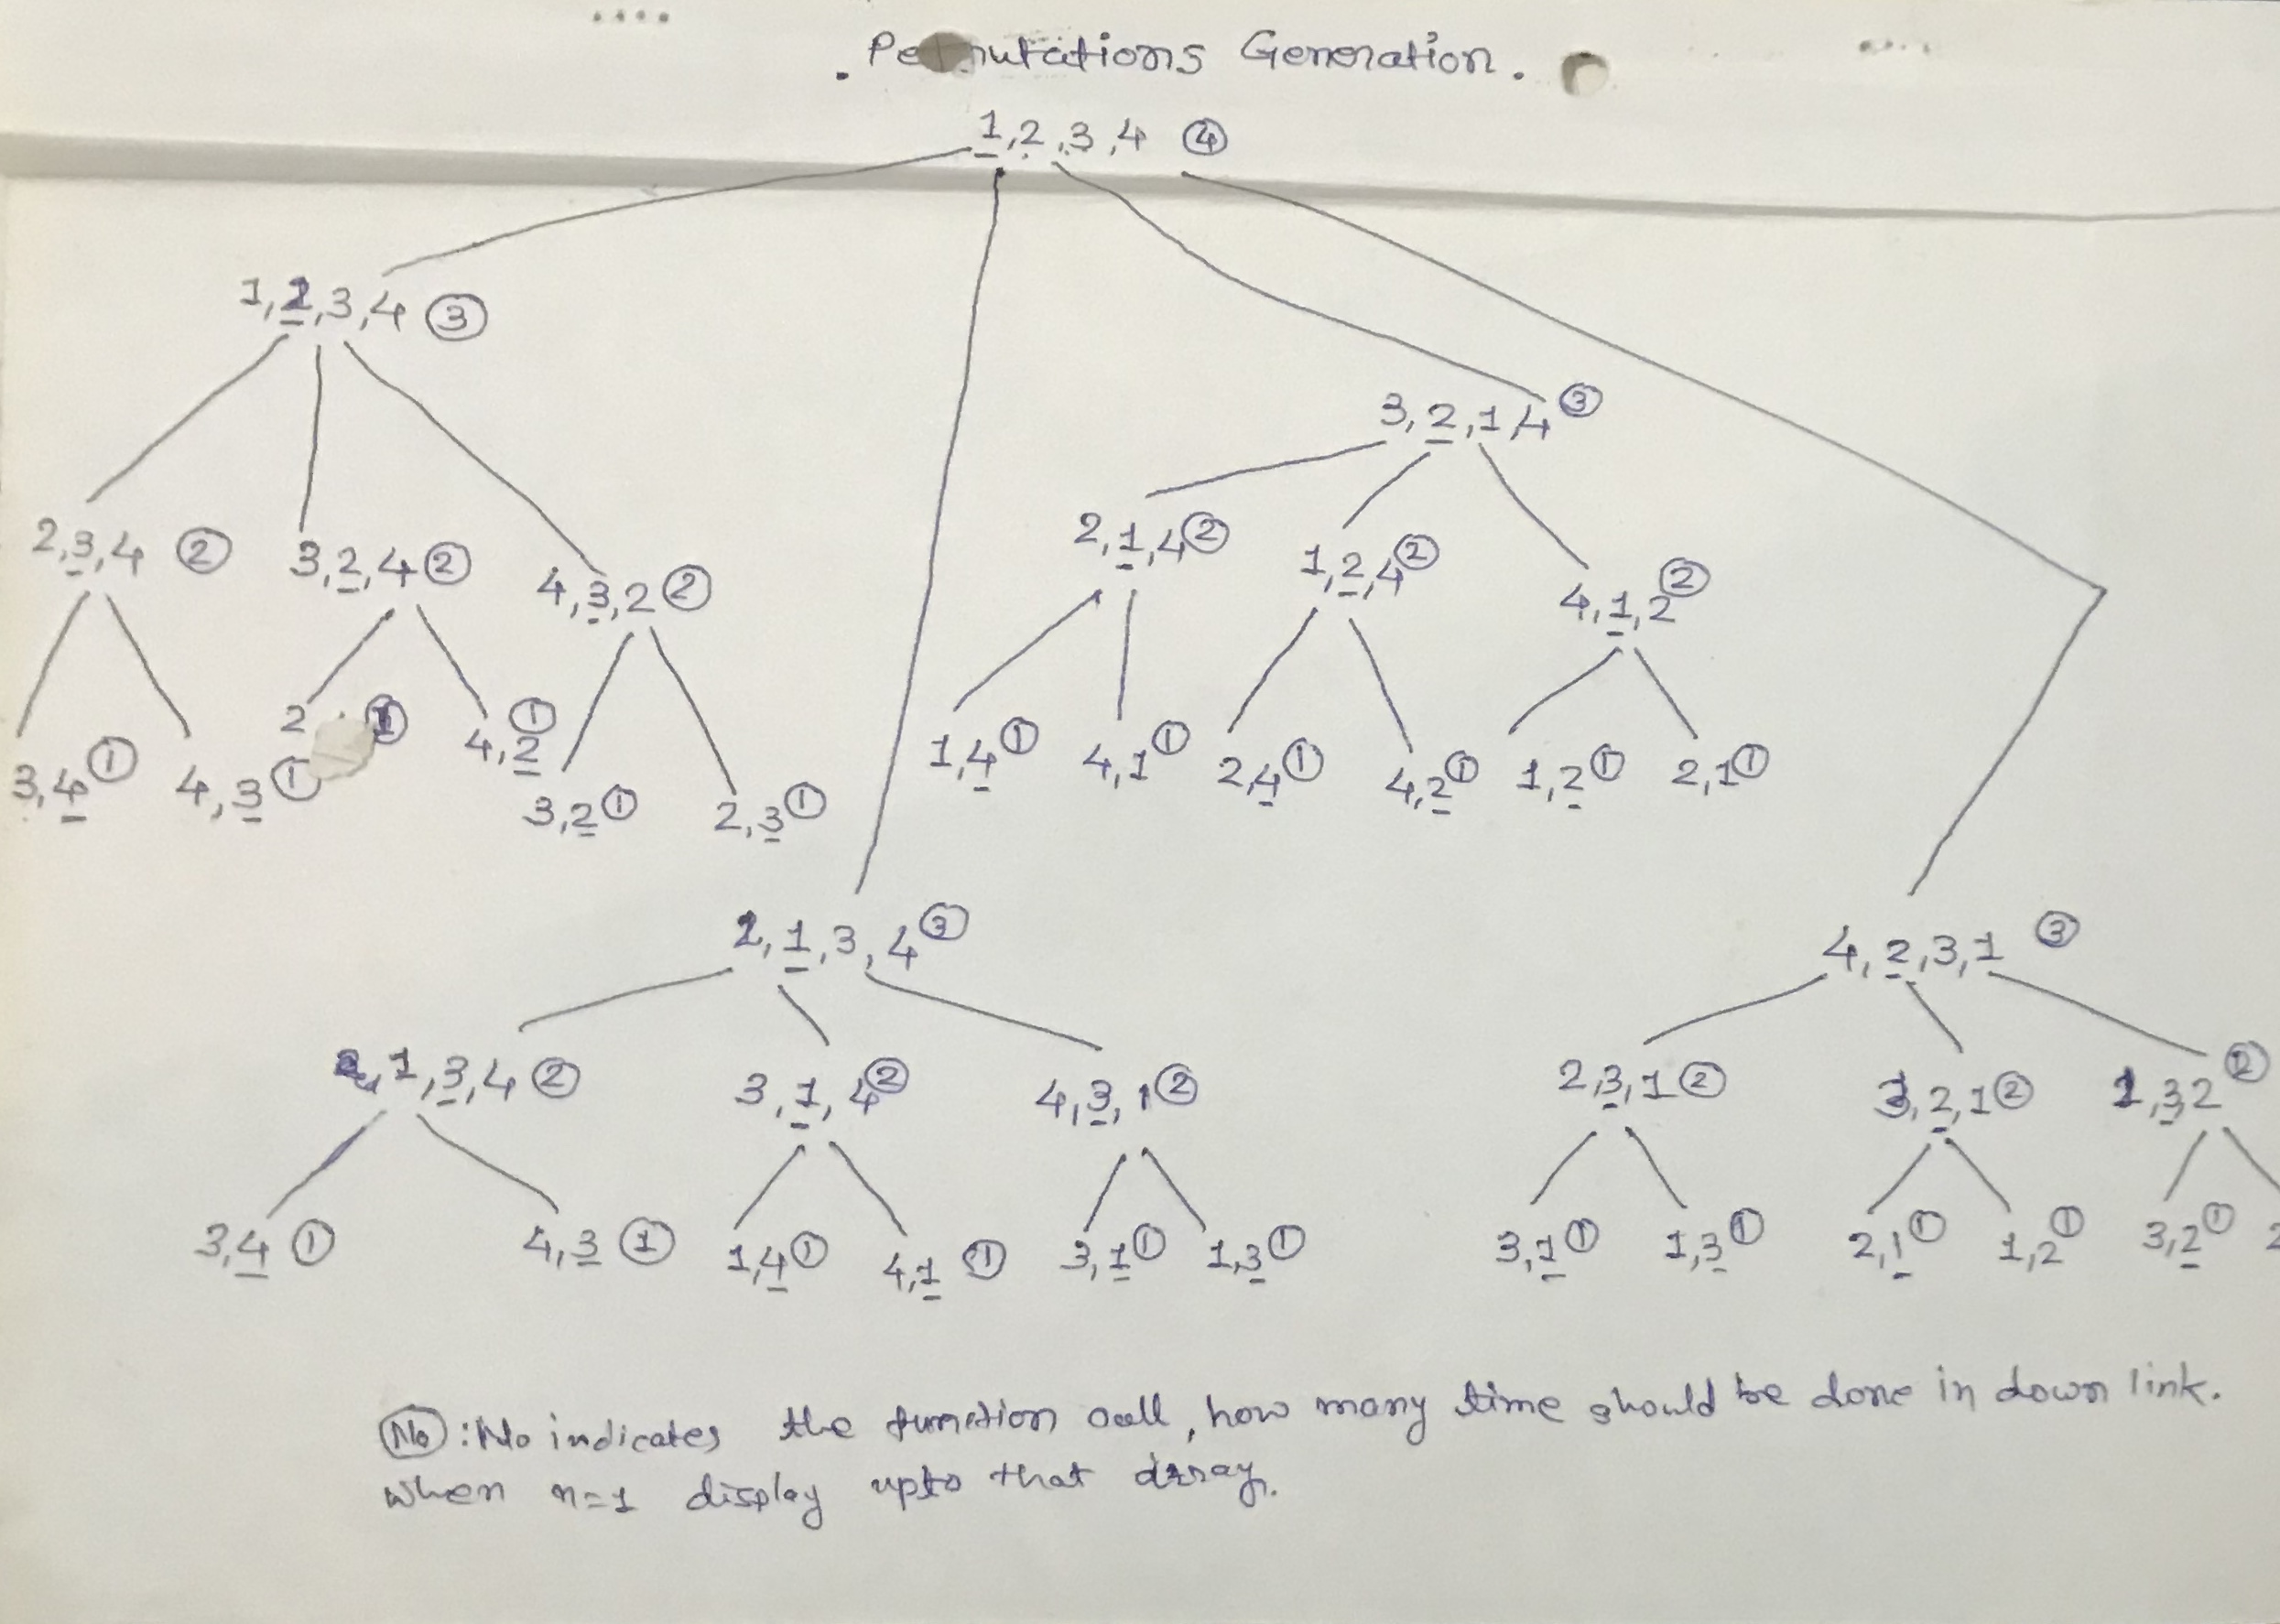 Permutations Generation.
1,2,3,4 ④
1,2,3,4 ③
3,2,1,4 ③
2,3,4 ②
3,2,4 ②
4,3,2 ②
2,1,4 ②
1,2,4 ②
4,1,2 ②
3,4 ①
4,3 ①
2 ①
4,2 ①
3,2 ①
2,3 ①
1,4 ①
4,1 ①
2,4 ①
4,2 ①
1,2 ①
2,1 ①
2,1,3,4 ③
4,2,3,1 ③
1,3,4 ②
3,1,4 ②
4,3,1 ②
2,3,1 ②
3,2,1 ②
1,3 2 ②
3,4 ①
4,3 ①
1,4 ①
4,1 ①
3,1 ①
1,3 ①
3,1 ①
1,3 ①
2,1 ①
1,2 ①
3,2 ①
2
No : No indicates the function call, how many time should be done in down link.
when n=1 display upto that array.